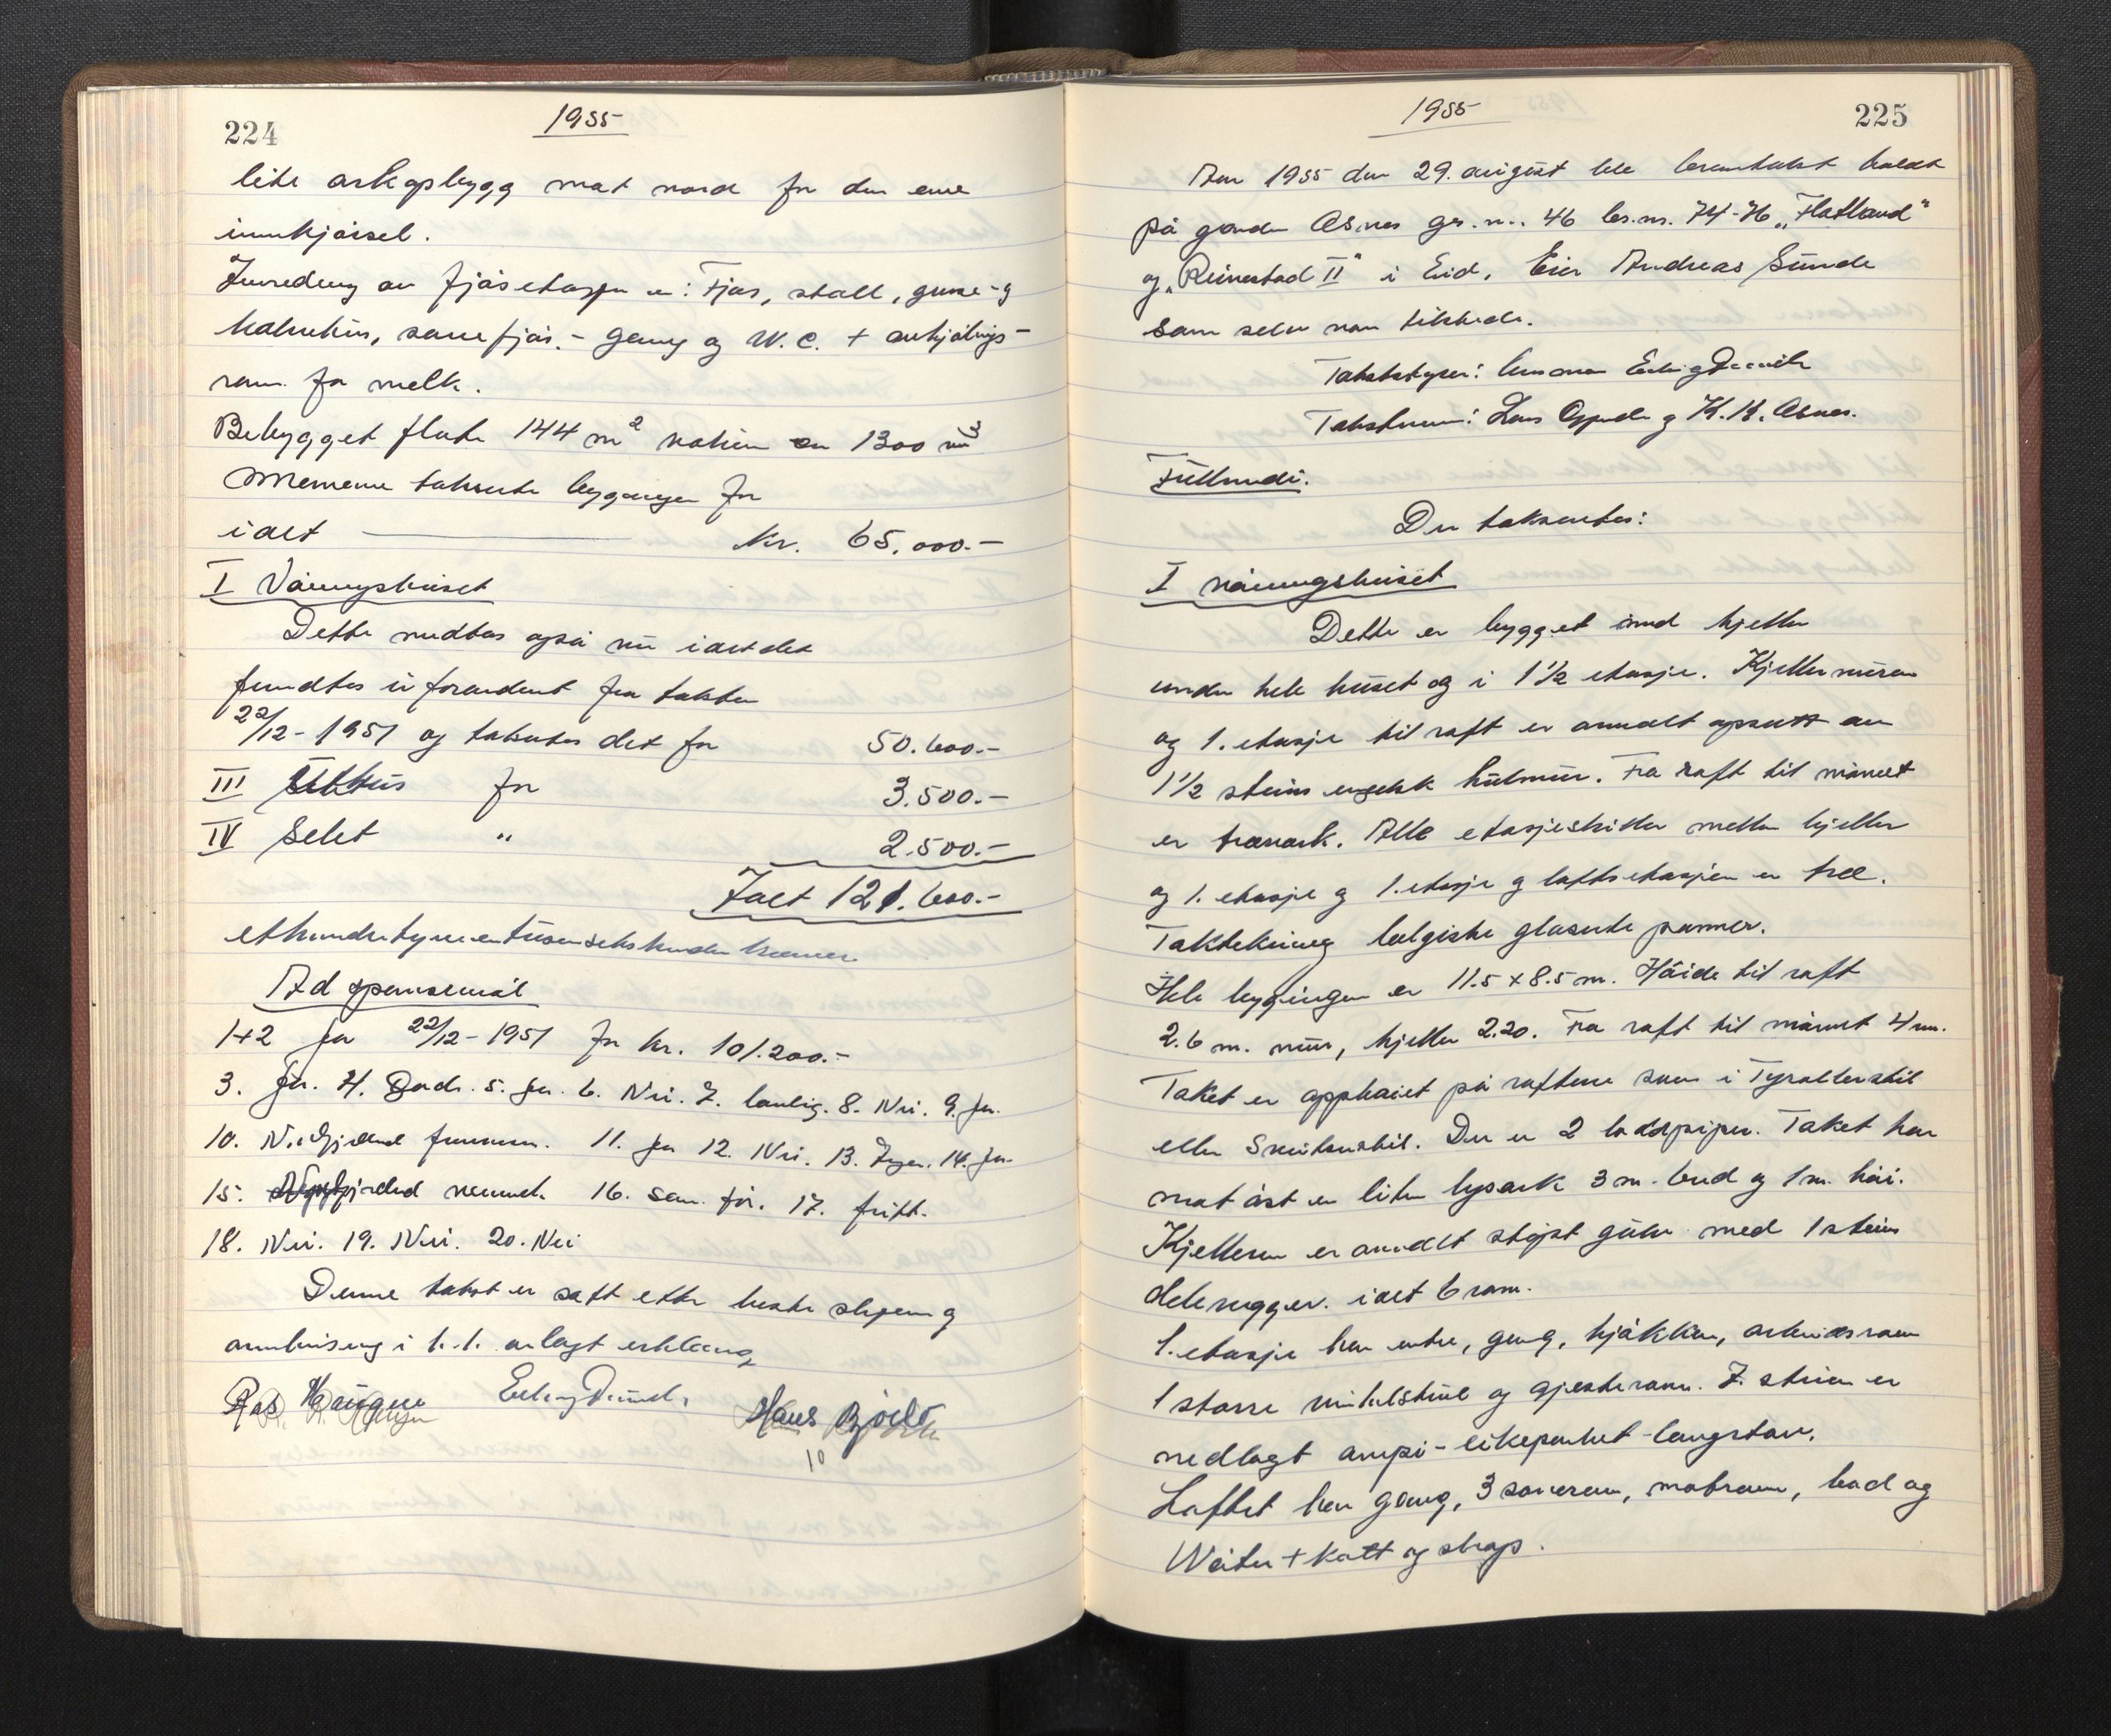 224
1955
lite arkopbygg mot nord for den ene
innkjørsel.
Innredning av fjøsetasjen er: Fjøs, stall, grise- og
kalvehus, sauefjøs, - gang og W.C. + avkjølings-
rom for melk.
Bebygget flate 144 m² volum en 1300 m³
Mennene takserte bygningen for
ialt kr. 65.000.-
I Våningshuset
Dette vedtas også nu idet det
fundtes uforandret fra taksten
22/12-1951 og takseres det for 50.600.-
III Ildhus for 3.500.-
IV Selet " 2.500.-
Ialt 121.600.-
etthundretyveentusensekshundre kroner
Ad spørsmål
1+2 fra 22/12-1951 for kr. 101.200.-
3. Ja. 4. Godt. 5. Ja. 6. Nei. 7. lovlig. 8. Nei. 9. Ja.
10. Nei 11. Ja 12. Nei. 13. Ingen. 14. Ja.
15. nevnte 16. som før. 17. fritt.
18. Nei. 19. Nei. 20. Nei
Denne takst er satt etter beste skjønn og
overbevisning i h.t. avlagt erklæring
Ras. Haugen Erling Hans Bjørlo
10
1955
225
Aar 1955 den 29. august ble branntakst holdt
på garden Osnes gr. nr. 46 br. nr. 74-76 „Flatland"
og „Reinestad II" i Eid. Eier Andreas Sunde
som selv var tilstede.
Takstbestyrer: lensmann Erling
Takstmenn: Lars Oppedal og K. K. Osnes.
Fullmakt.
Der takseertes:
I våningshuset
Dette er bygget med kjeller
under hele huset og i 1 1/2 etasje. Kjellermuren
og 1. etasje til raft er overalt oppsatt av
1 1/2 steins engelsk hulmur. Fra raft til mønet
er treverk. Alle etasjeskiller mellom kjeller
og 1. etasje og 1. etasje og loftsetasjen er tre.
Taktekning belgiske glaserte panner.
Hele bygningen er 11.5 x 8.5 m. Høide til raft
2.6 m. mur, kjeller 2.20. Fra raft til mønet 4 m.
Taket er opphøiet på raftene som i Tyrollerstil
eller Sveitserstil. Der er 2 loddpiper. Taket har
mot øst en liten lysark 3 m. bred og 1 m. høi.
Kjelleren er overalt støpt gulv med 1 steins
delevegger. ialt 6 rom.
1. etasje har entre, gang, kjøkken, arbeidsrom
1 større vinkelstue og gjesterom. I stuen er
nedlagt eikeparket-langstav.
Loftet har gang, 3 soverom, matrom, bad og
Water + kott og skap.